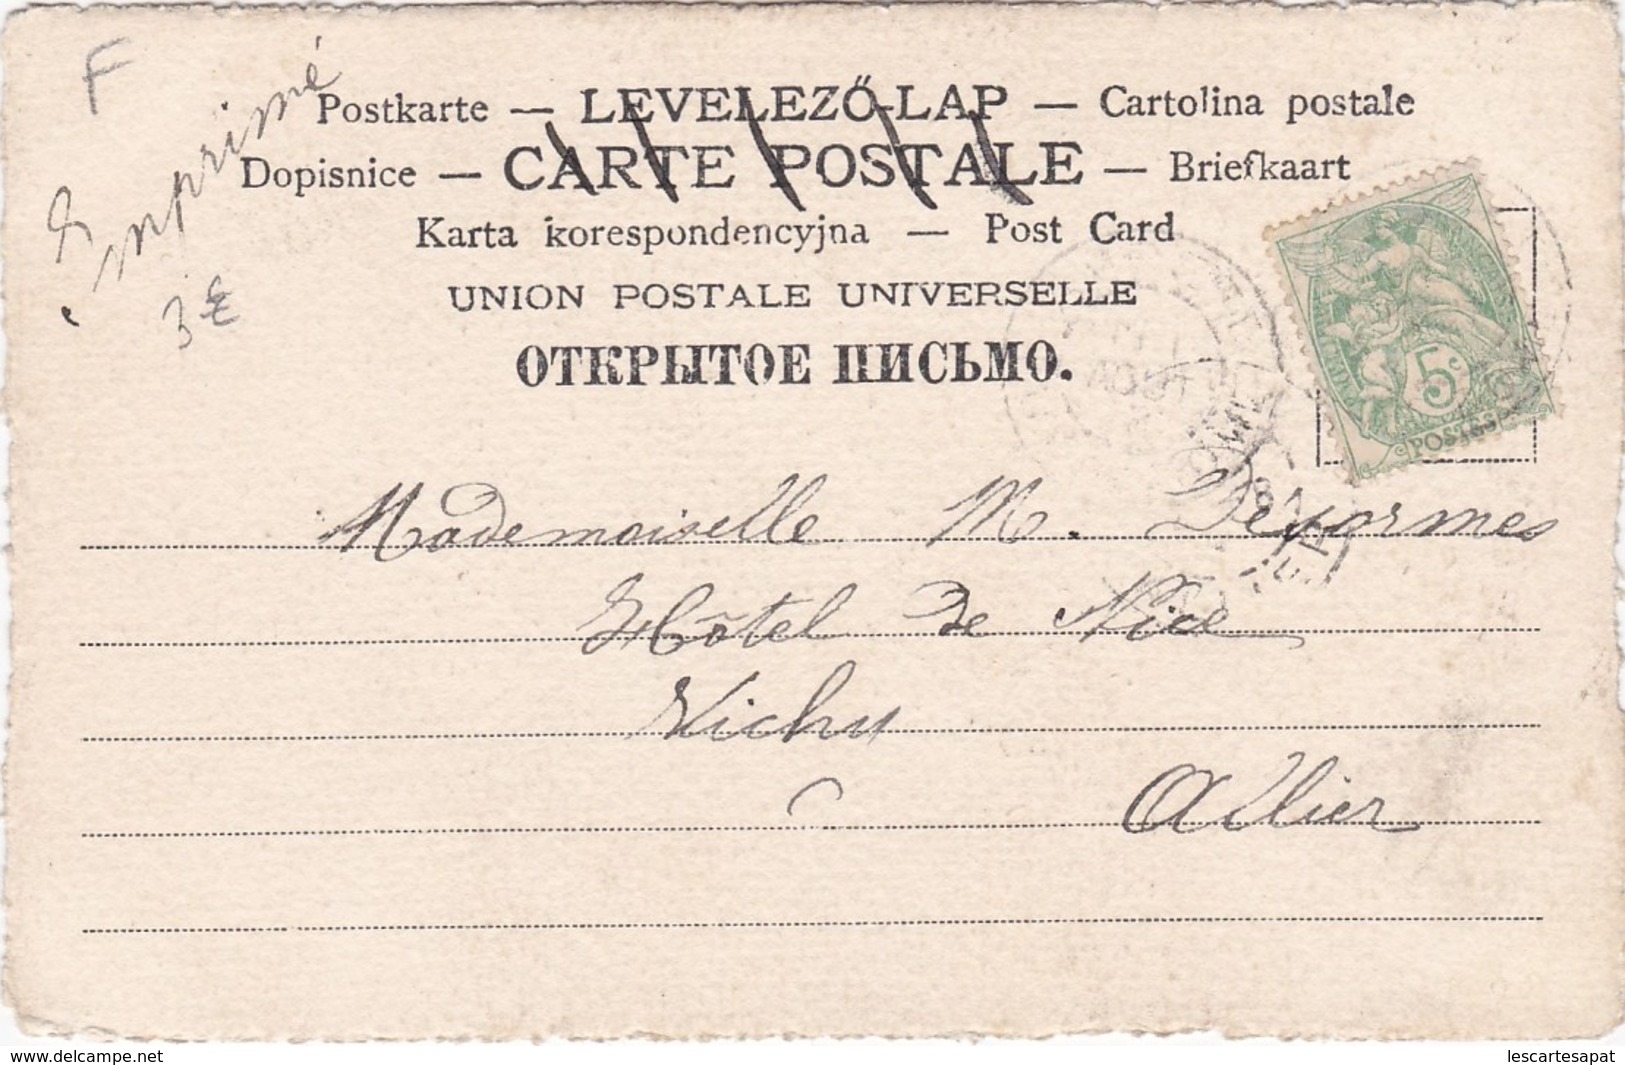 F
Imprimé
3€
Postkarte — LEVELEZŐ-LAP — Cartolina postale
Dopisnice — CARTE POSTALE — Briefkaart
Karta korespondencyjna — Post Card
UNION POSTALE UNIVERSELLE
ОТКРЫТОЕ ПИСЬМО.
5c
POSTES
Mademoiselle M.
Hôtel De Nice
Vichy
Allier
www.delcampe.net
lescartesapat